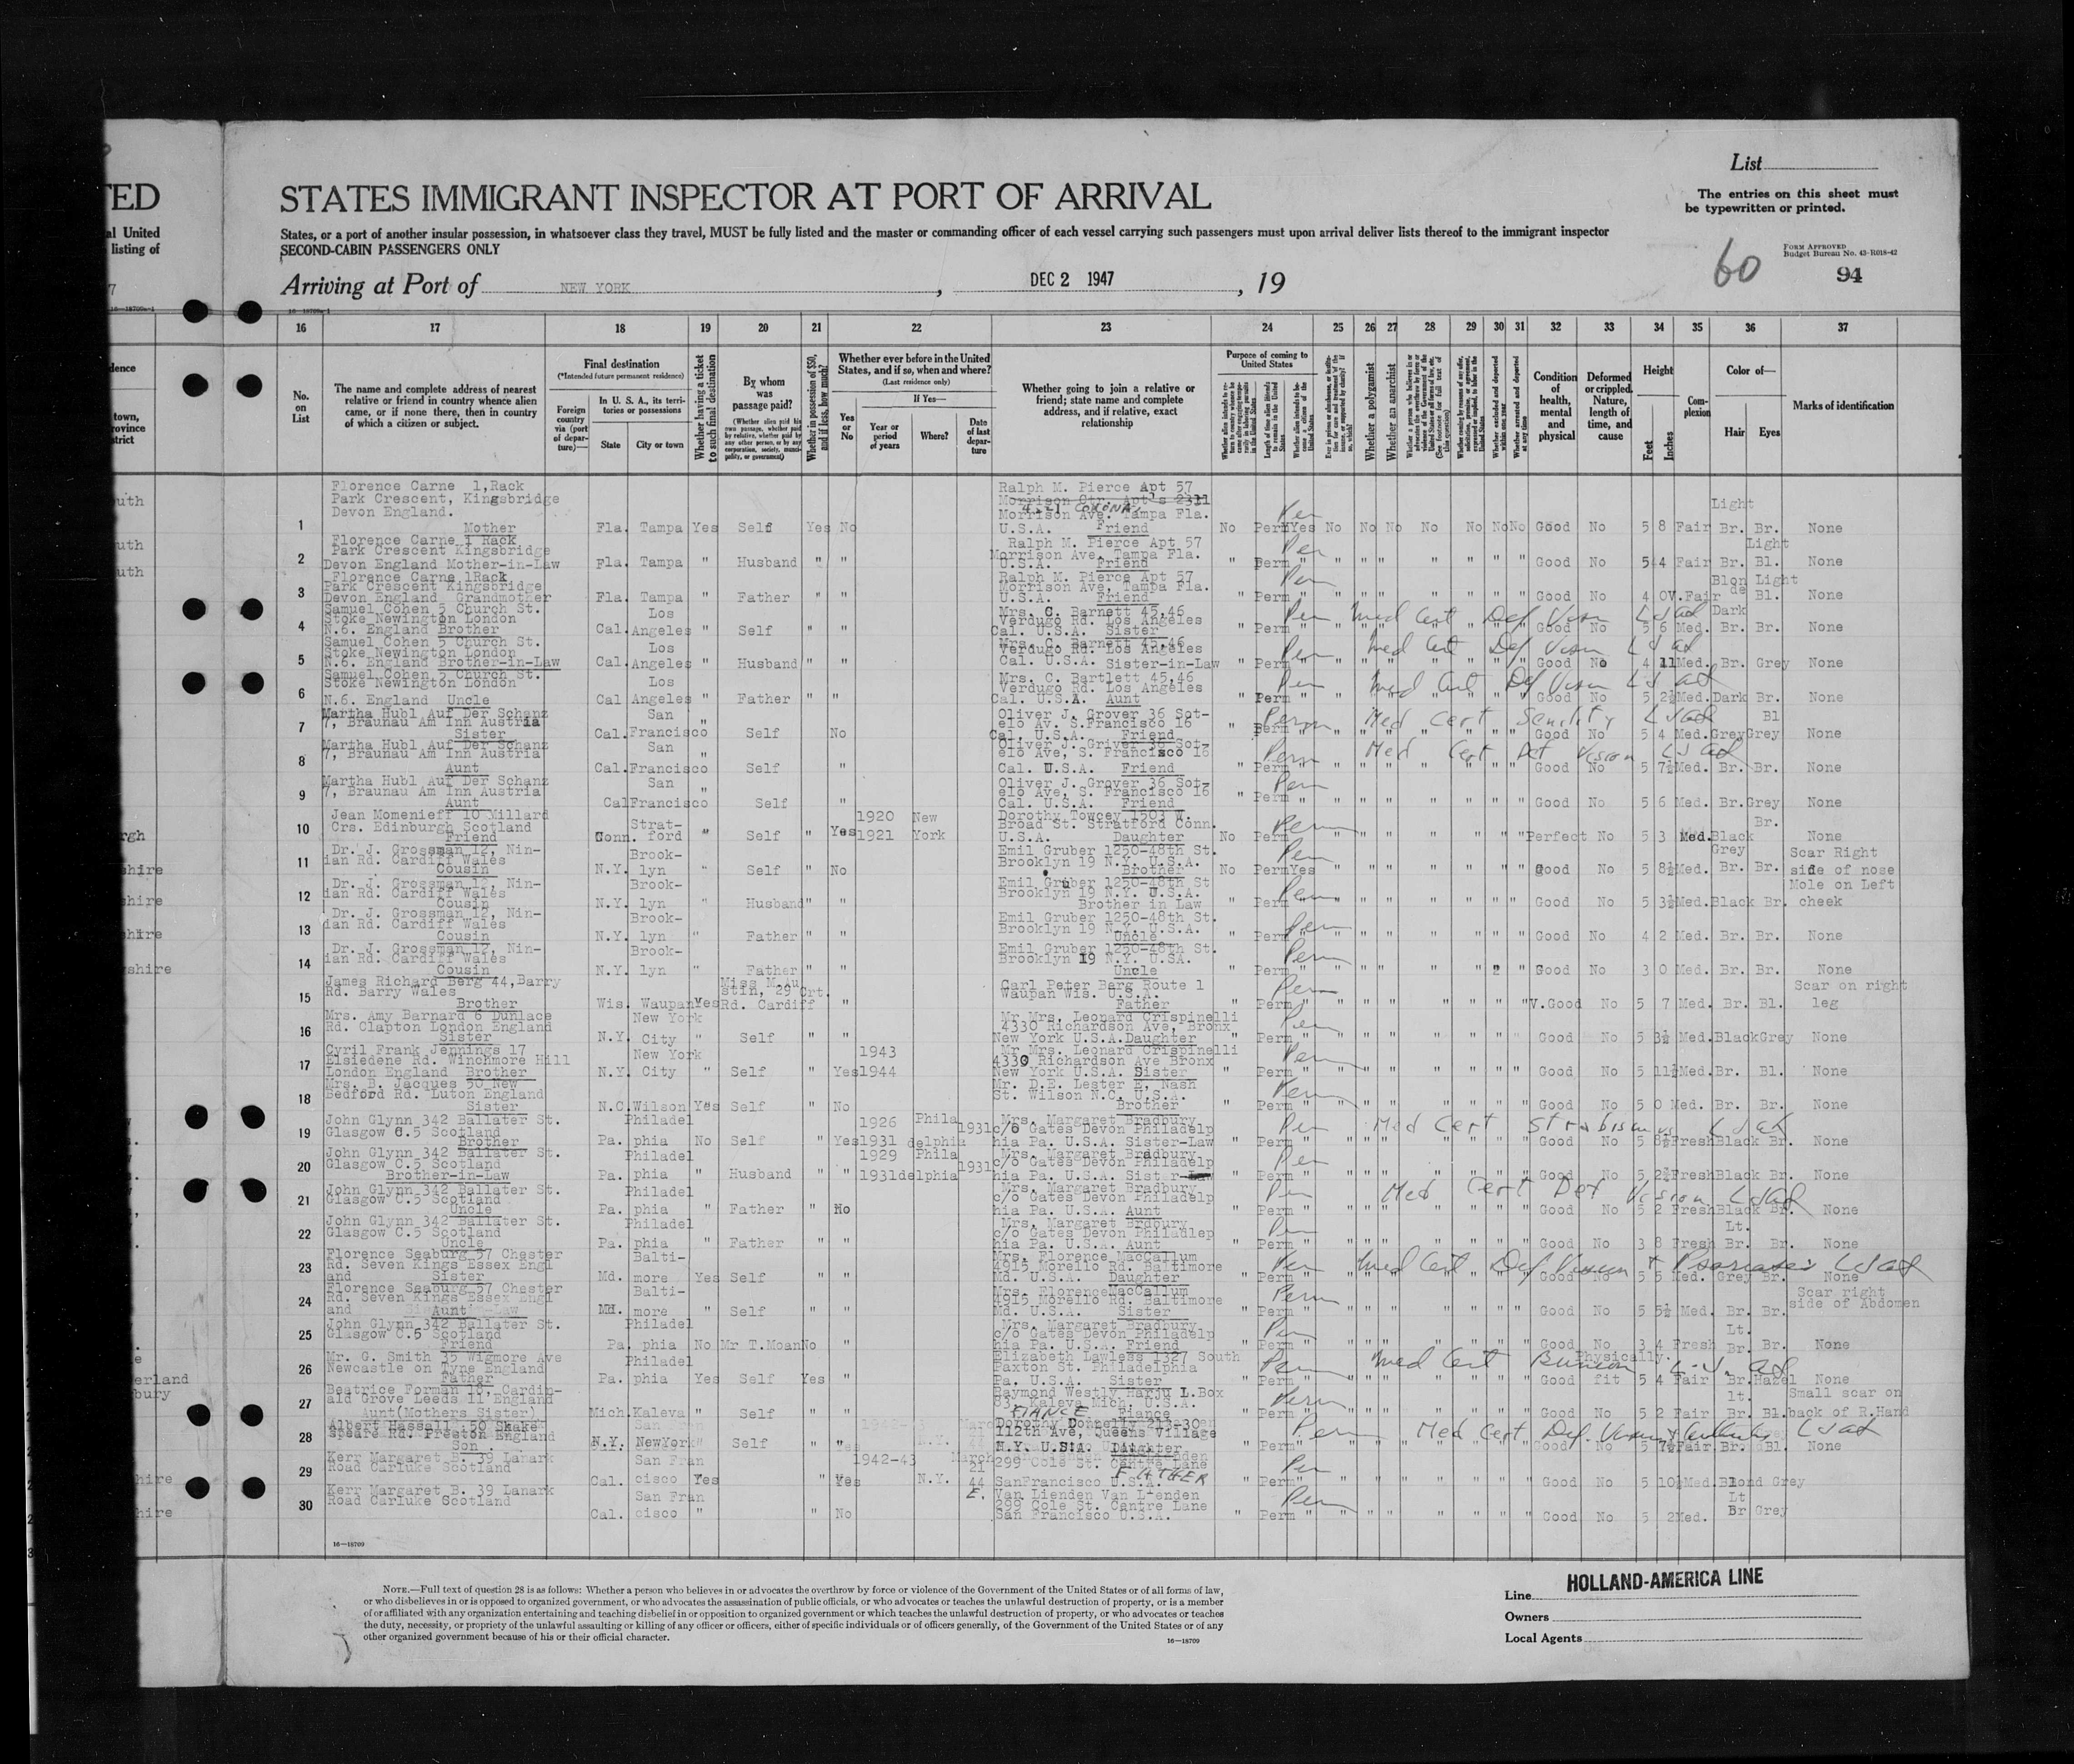 List
The entries on this sheet must
be typewritten or printed.
TED
STATES IMMIGRANT INSPECTOR AT PORT OF ARRIVAL
al United
listing of
States, or a port of another insular possession, in whatsoever class they travel, MUST be fully listed and the master or commanding officer of each vessel carrying such passengers must upon arrival deliver lists thereof to the immigrant inspector
SECOND-CABIN PASSENGERS ONLY
60
FORM APPROVED
Budget Bureau No. 43-R018-42
94
Arriving at Port of NEW YORK, DEC 2 1947, 19
16 17 18 19 20 21 22 23 24 25 26 27 28 29 30 31 32 33 34 35 36 37
No. on List
The name and complete address of nearest relative or friend in country whence alien came, or if none there, then in country of which a citizen or subject.
Final destination
(*Intended future permanent residence)
Foreign country via (port of departure)—
In U. S. A., its territories or possessions
State City or town
Whether having a ticket to such final destination
By whom was passage paid?
Whether in possession of $50, and if less, how much?
Whether ever before in the United States, and if so, when and where?
(Last residence only)
Yes or No
If Yes—
Year or period of years
Where?
Date of last departure
Whether going to join a relative or friend; state name and complete address, and if relative, exact relationship
Purpose of coming to United States
Whether a polygamist
Whether an anarchist
Condition of health, mental and physical
Deformed or crippled. Nature, length of time, and cause
Height
Feet Inches
Complexion
Color of—
Hair Eyes
Marks of identification
Florence Carne 1,Rack Ralph M. Pierce Apt 57
Park Crescent, Kingsbridge Morrison Ctr. Apt's 2311 Light
Devon England. Morrison Ave. Tampa Fla. Per
1 Mother Fla. Tampa Yes Self Yes No U.S.A. Friend No Perm Yes No No No No No No No Good No 5 8 Fair Br. Br. None
Florence Carne 1 Rack Ralph M. Pierce Apt 57 Light
Park Crescent Kingsbridge Morrison Ave. Tampa Fla. Per
2 Devon England Mother-in-Law Fla. Tampa " Husband " " U.S.A. Friend " Perm " Good No 5 4 Fair Br. Bl. None
Florence Carne 1Rack Ralph M. Pierce Apt 57 Blonde Light
Park Crescent Kingsbridge Morrison Ave, Tampa Fla. Per
3 Devon England Grandmother Fla. Tampa " Father " " U.S.A. Friend " Perm " Good No 4 0 V.Fair Bl. None
Samuel Cohen 5 Church St. Los Mrs. C. Barnett 45,46 Dark
Stoke Newington London Verdugo Rd. Los Angeles Per Med Cert Def Vision
4 N.6. England Brother Cal. Angeles " Self " " Cal. U.S.A. Sister " Perm " Good No 5 6 Med. Br. Br. None
Samuel Cohen 5 Church St. Los Mrs. C. Barnett 45,46
Stoke Newington London Verdugo Rd. Los Angeles Per Med Cert Def Vision
5 N.6. England Brother-in-Law Cal. Angeles " Husband " " Cal. U.S.A. Sister-in-Law " Perm " Good No 4 11 Med. Br. Grey None
Samuel Cohen 5 Church St. Los Mrs. C. Bartlett 45,46
Stoke Newington London Verdugo Rd. Los Angeles Per Med Cert Def Vision
6 N.6. England Uncle Cal Angeles " Father " " Cal. U.S.A. Aunt " Perm " Good No 5 2½ Med. Dark Br. None
Martha Hubl Auf Der Schanz San Oliver J. Grover 36 Sot-
7, Braunau Am Inn Austria elo Av. S.Francisco 16 Perm Med Cert Senility Bl
7 Sister Cal. Francisco " Self No Cal. U.S.A. Friend " Perm " Good No 5 4 Med. Grey Grey None
Martha Hubl Auf Der Schanz San Oliver J. Griver 36 Sot-
7, Braunau Am Inn Austria elo Ave, S. Francisco 16 Perm Med Cert Def Vision
8 Aunt Cal. Francisco " Self " Cal. U.S.A. Friend " Perm " Good No 5 7½ Med. Br. Br. None
Martha Hubl Auf Der Schanz San Oliver J. Grover 36 Sot-
7, Braunau Am Inn Austria elo Ave, S. Francisco 16 Per
9 Aunt Cal Francisco " Self " Cal. U.S.A. Friend " Perm " Good No 5 6 Med. Br. Grey None
Jean Momenieff 10 Millard 1920 New Dorothy Towcey 1503 W.
Crs. Edinburgh Scotland Strat- Broad St. Stratford Conn. Perm Br.
10 Friend Conn. ford " Self " Yes 1921 York U.S.A. Daughter No Perm " Perfect No 5 3 Med. Black None
Dr. J. Grossman 12, Nin- Brook- Emil Gruber 1250-48th St. Grey Scar Right
ian Rd. Cardiff Wales Brooklyn 19 N.Y. U.S.A. Per
11 Cousin N.Y. lyn " Self " No Brother No Perm Yes " Good No 5 8½ Med. Br. Br. side of nose
Dr. J. Grossman 12, Nin- Brook- Emil Gruber 1250-48th St Mole on Left
ian Rd. Cardiff Wales Brooklyn 19 N.Y. U.S.A.
12 Cousin N.Y. lyn " Husband " " Brother in Law " Perm " Good No 5 3½ Med. Black Br. cheek
Dr. J. Grossman 12, Nin- Brook- Emil Gruber 1250-48th St.
ian Rd. Cardiff Wales Brooklyn 19 N.Y. U.S.A. Per
13 Cousin N.Y. lyn " Father " " Uncle " Perm " Good No 4 2 Med. Br. Br. None
Dr. J. Grossman 12, Nin- Brook- Emil Gruber 1250-48th St.
ian Rd. Cardiff Wales Brooklyn 19 N.Y. U.SA. Perm
14 Cousin N.Y. lyn " Father " " Uncle " Perm " Good No 3 0 Med. Br. Br. None
James Richard Berg 44,Barry Carl Peter Berg Route 1 Scar on right
Rd. Barry Wales stin, 29 Crt. Waupan Wis. U.S.A. Per
15 Brother Wis. Waupan Yes Rd. Cardiff " Father " Perm " V.Good No 5 7 Med. Br. Bl. leg
Mrs. Amy Barnard 6 Dunlace New York Mr Mrs. Leonard Crispinelli
Rd. Clapton London England 4330 Richardson Ave, Bronx Per
16 Sister N.Y. City " Self " " New York U.S.A. Daughter " Perm " Good No 5 3½ Med. Black Grey None
Cyril Frank Jennings 17 New York 1943 Mr Mrs. Leonard Crispinelli
Elsiedene Rd. Winchmore Hill 4330 Richardson Ave Bronx Per
17 London England Brother N.Y. City " Self " Yes 1944 New York U.S.A. Sister " Perm " Good No 5 11½ Med. Br. Bl. None
Mrs. B. Jacques 50 New Mr. D.E. Lester E. Nash
Bedford Rd. Luton England St. Wilson N.C. U.S.A. Per
18 Sister N.C. Wilson Yes Self " No Brother " Perm " Good No 5 0 Med. Br. Br. None
John Glynn 342 Ballater St. Philadel 1926 Phila Mrs. Margaret Bradbury
Glasgow C.5 Scotland 1931 c/o Gates Devon Philadelp Per Med Cert Strabismus
19 Brother Pa. phia No Self " Yes 1931 delphia hia Pa. U.S.A. Sister-Law " Perm " Good No 5 8½ Fresh Black Br. None
John Glynn 342 Ballater St. Philadel 1929 Phila Mrs. Margaret Bradbury
Glasgow C.5 Scotland 1931 c/o Gates Devon Philadelp Per
20 Brother-in-Law Pa. phia " Husband " " 1931 delphia hia Pa. U.S.A. Sister " Perm " Good No 5 2½ Fresh Black Br. None
John Glynn 342 Ballater St. Philadel Mrs. Margaret Bradbury
Glasgow C.5 Scotland c/o Gates Devon Philadelp Per Med Cert Def Vision
21 Uncle Pa. phia " Father " No hia Pa. U.S.A. Aunt " Perm " Good No 5 2 Fresh Black Br. None
John Glynn 342 Ballater St. Philadel Mrs. Margaret Brdbury Lt.
Glasgow C.5 Scotland c/o Gates Devon Philadlep Per
22 Uncle Pa. phia " Father " " hia Pa. U.S.A. Aunt " Perm " Good No 3 8 Fresh Br. Br. None
Florence Seaburg 57 Chester Balti- Mrs. Florence MacCallum
Rd. Seven Kings Essex Engl 4915 Morello Rd. Baltimore Per Med Cert Def Vision + Psoriasis
23 and Sister Md. more Yes Self " " Md. U.S.A. Daughter " Perm " Good No 5 5 Med. Grey Br. None
Florence Seaburg 57 Chester Balti- Mrs. Florence MacCallum Scar right
Rd. Seven Kings Essex Engl 4915 Morello Rd. Baltimore Perm side of Abdomen
24 and Aunt more " Self " " Md. U.S.A. Sister " Perm " Good No 5 5½ Med. Br. Br.
John Glynn 342 Ballater St. Philadel Mrs. Margaret Bradbury Lt.
Glasgow C.5 Scotland c/o Gates Devon Philadelp Per
25 Friend Pa. phia No Mr T.Moan No " hia Pa. U.S.A. Friend " Perm " Good No 3 4 Fresh Br. Br. None
Mr. G. Smith 35 Wigmore Ave Philadel Elizabeth Lawless 1327 South Physically
Newcastle on Tyne England Paxton St. Philadelphia Per Med Cert Bunion
26 Father Pa. phia Yes Self Yes " Pa. U.S.A. Sister " Perm " Good fit 5 4 Fair Br. Hazel None
Beatrice Forman 18, Cardin- Raymond Westly Harju L.Box lt. Small scar on
ald Grove Leeds 11 England 83, Kaleva Mich, U.S.A. Perm
27 Aunt(Mothers Sister) Mich. Kaleva " Self " " FIANCE Fiance " Perm " Good No 5 2 Fair Br. Bl. back of R.Hand
Albert Hassall, 50 Shake- Dorothy Donnelly 213-30
speare Rd. Preston England 112th Ave, Queens Village Per Med Cert Def. Vision
28 Son N.Y. NewYork " Self " " N.Y. U.S.A. Daughter " Perm " Good No 5 7½ Fair Br. Bl None
Kerr Margaret B. 39 Lanark San Fran 1942-43 March
Road Carluke Scotland 21 299 Cole St. Centre Lane Per
29 Cal. cisco Yes " Yes N.Y. 44 FATHER SanFrancisco U.S.A. " Perm " Good No 5 10½ Med. Blond Grey
Kerr Margaret B. 39 Lanark San Fran E. Van Lienden Van Lienden Lt
Road Carluke Scotland 299 Cole St. Centre Lane Per
30 Cal. cisco " " No San Francisco U.S.A. " Perm " Good No 5 2 Med. Br Grey
16—18709
NOTE.—Full text of question 28 is as follows: Whether a person who believes in or advocates the overthrow by force or violence of the Government of the United States or of all forms of law,
or who disbelieves in or is opposed to organized government, or who advocates the assassination of public officials, or who advocates or teaches the unlawful destruction of property, or is a member
of or affiliated with any organization entertaining and teaching disbelief in or opposition to organized government or which teaches the unlawful destruction of property, or who advocates or teaches
the duty, necessity, or propriety of the unlawful assaulting or killing of any officer or officers, either of specific individuals or of officers generally, of the Government of the United States or of any
other organized government because of his or their official character.
16—18709
Line HOLLAND-AMERICA LINE
Owners
Local Agents